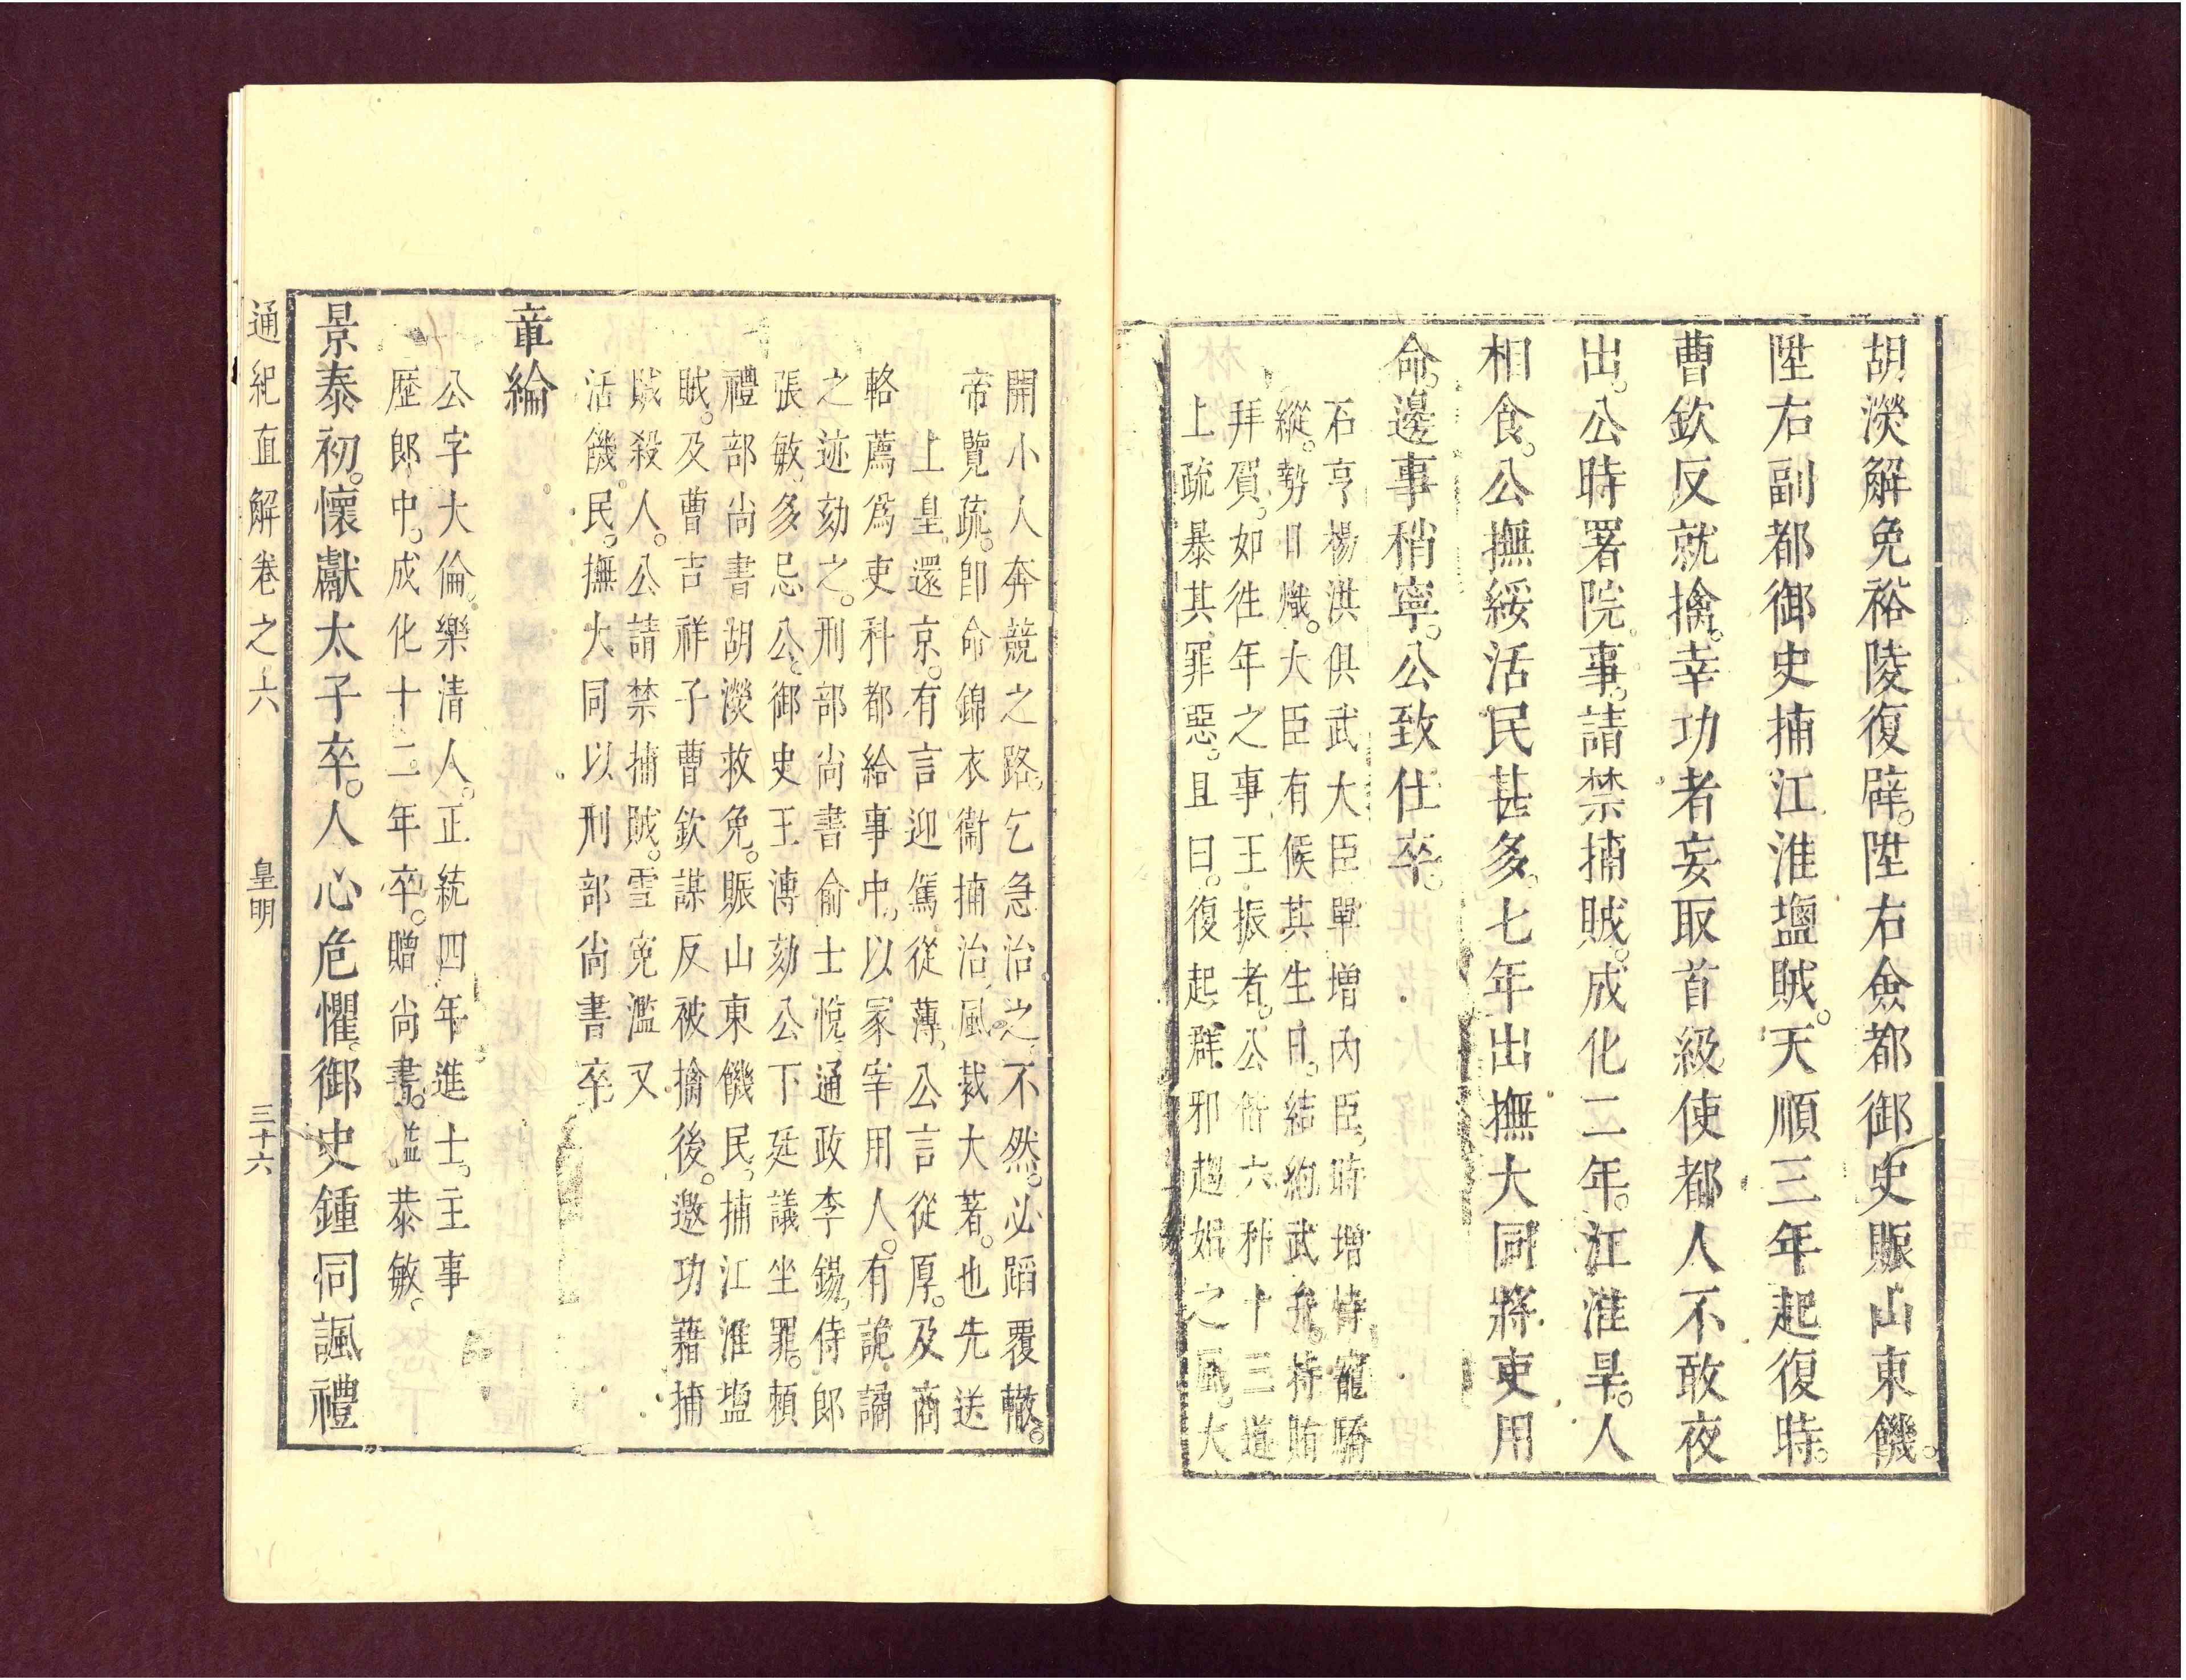 胡濙解免裕陵復辟。陞右僉都御史賑山東饑。
陞右副都御史捕江淮鹽賊。天順三年起復時。
曹欽反就擒。幸功者妄取首級使都人不敢夜
出。公時署院事。請禁捕賊。成化二年。江淮旱。人
相食。公撫綏活民甚多。七年出撫大同將吏用
命。邊事稍寧。公致仕卒。
石亨楊洪俱武大臣單增內臣。時增恃寵驕
縱。勢日熾。大臣有候其生日。結約武弁。持賄
拜賀。如徃年之事王振者。公偕六科十三道
上疏暴其罪惡。且曰。復起群邪趨媚之風。大
開小人奔競之路。乞急治之。不然。必蹈覆轍。
帝覽疏。卽命錦衣衞捕治。風裁大著。也先送
上皇還京。有言迎駕從薄。公言從厚。及商
輅薦爲吏科都給事中。以冢宰用人。有詭譎
之迹劾之。刑部尚書俞士悅。通政李錫。侍郎
張敏。多忌公。御史王溥劾公下廷議坐罪。頼
禮部尚書胡濙救免。賑山東饑民。捕江淮鹽
賊。及曹吉祥子曹欽謀反被擒後。邀功藉捕
賊殺人。公請禁捕賊。雪寃濫又
活饑民。撫大同以刑部尚書卒
章綸
公字大倫。樂清人。正統四年進士。主事
歷郎中。成化十二年卒。贈尚書。謚恭敏。
景泰初。懷獻太子卒。人心危懼。御史鍾同諷禮
通紀直解卷之六 皇明 三十六